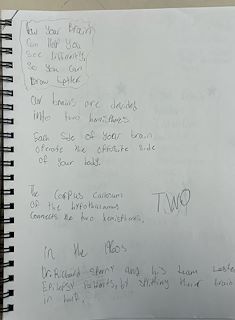 How Your Brain
Can Help You
See Differently,
So You Can
Draw better
Our brains are divided
into two hemispheres
Each side of your brain
operate the opposite side
of your body.
The Corpus callosum
of the hypothalamus
connects the two hemispheres.
TWO
in the 1960s
Dr. Richard Sperry and his team tested
Epilepsy Patients, by splitting their brain
in half.